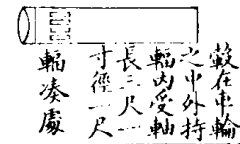 轂在車輪
之中外持
輻內受軸
長三尺二
寸徑一尺
輻湊處